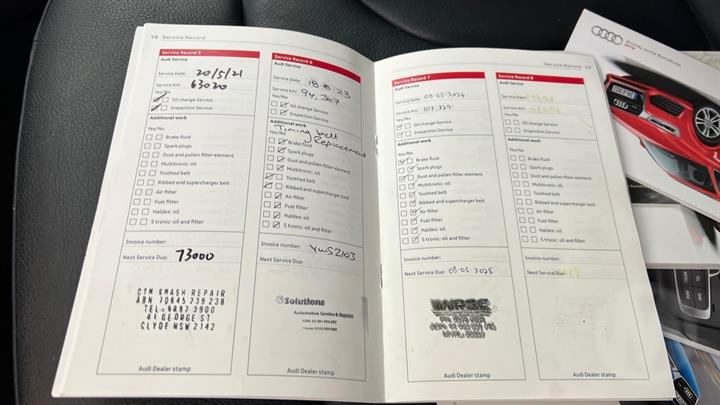 18 Service Record
Service Record 5
Audi Service
Service Date: 20/5/21
Service km: 63020
Yes/No
Oil change Service
Inspection Service
Additional work
Yes/No
Brake fluid
Spark plugs
Dust and pollen filter element
Multitronic: oil
Toothed belt
Ribbed and supercharger belt
Air filter
Fuel filter
Haldex: oil
S tronic: oil and filter
Invoice number:
Next Service Due: 73000
CTM SMASH REPAIR
ABN 70645 739 238
TEL: 9897 3900
41 GEORGE ST
CLYDE NSW 2142
Audi Dealer stamp
Service Record 6
Audi Service
Service Date: 18.8.23
Service km: 94,367
Yes/No
Oil change Service
Inspection Service
Additional work
Timing belt
Replacement
Yes/No
Brake fluid
Spark plugs
Dust and pollen filter element
Multitronic: oil
Toothed belt
Ribbed and supercharger belt
Air filter
Fuel filter
Haldex: oil
S tronic: oil and filter
Invoice number: VWS2103
Next Service Due:
Solutions
Automotive Service & Repairs
Audi Dealer stamp
Service Record
Service Record 7
Audi Service
Service Date: 08-05-2024
Service km: 107,329
Yes/No
Oil change Service
Inspection Service
Additional work
Yes/No
Brake fluid
Spark plugs
Dust and pollen filter element
Multitronic: oil
Toothed belt
Ribbed and supercharger belt
Air filter
Fuel filter
Haldex: oil
S tronic: oil and filter
Invoice number:
Next Service Due: 08-05-2025
Audi Dealer stamp
Service Record 8
Audi Service
Service Date:
Service km:
Yes/No
Oil change Service
Inspection Service
Additional work
Yes/No
Brake fluid
Spark plugs
Dust and pollen filter element
Multitronic: oil
Toothed belt
Ribbed and supercharger belt
Air filter
Fuel filter
Haldex: oil
S tronic: oil and filter
Invoice number:
Next Service Due:
Audi Dealer stamp
Audi